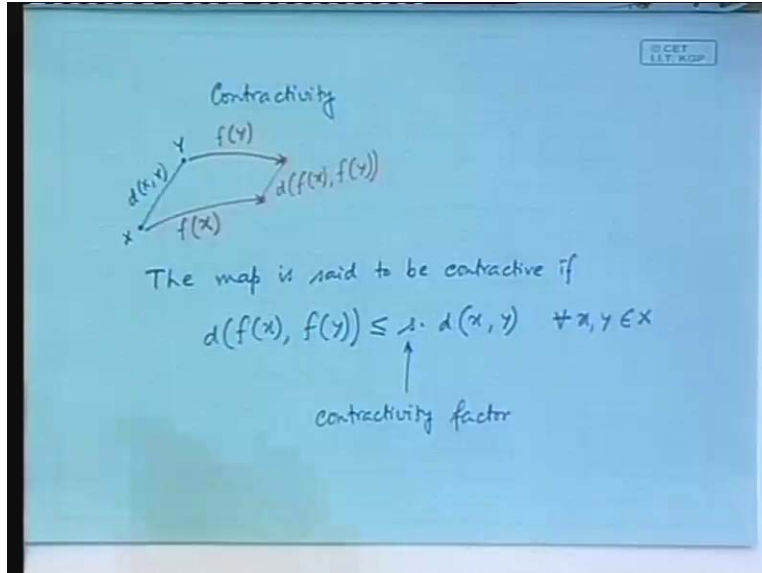 © CET
I.I.T. KGP
Contractivity
Y f(y)
d(x,y)
d(f(x), f(y))
x f(x)
The map is said to be contractive if
d(f(x), f(y)) ≤ s. d(x, y) ∀ x, y ∈ X
contractivity factor